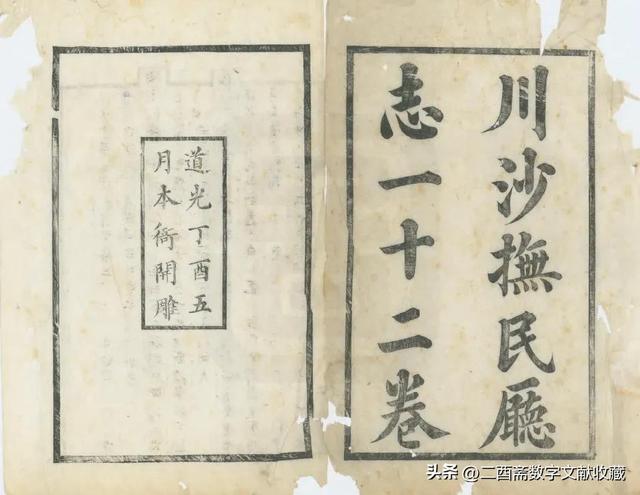 川沙撫民廳
志一十二卷
道光丁酉五
月本衙開雕
头条 @二酉斋数字文献收藏